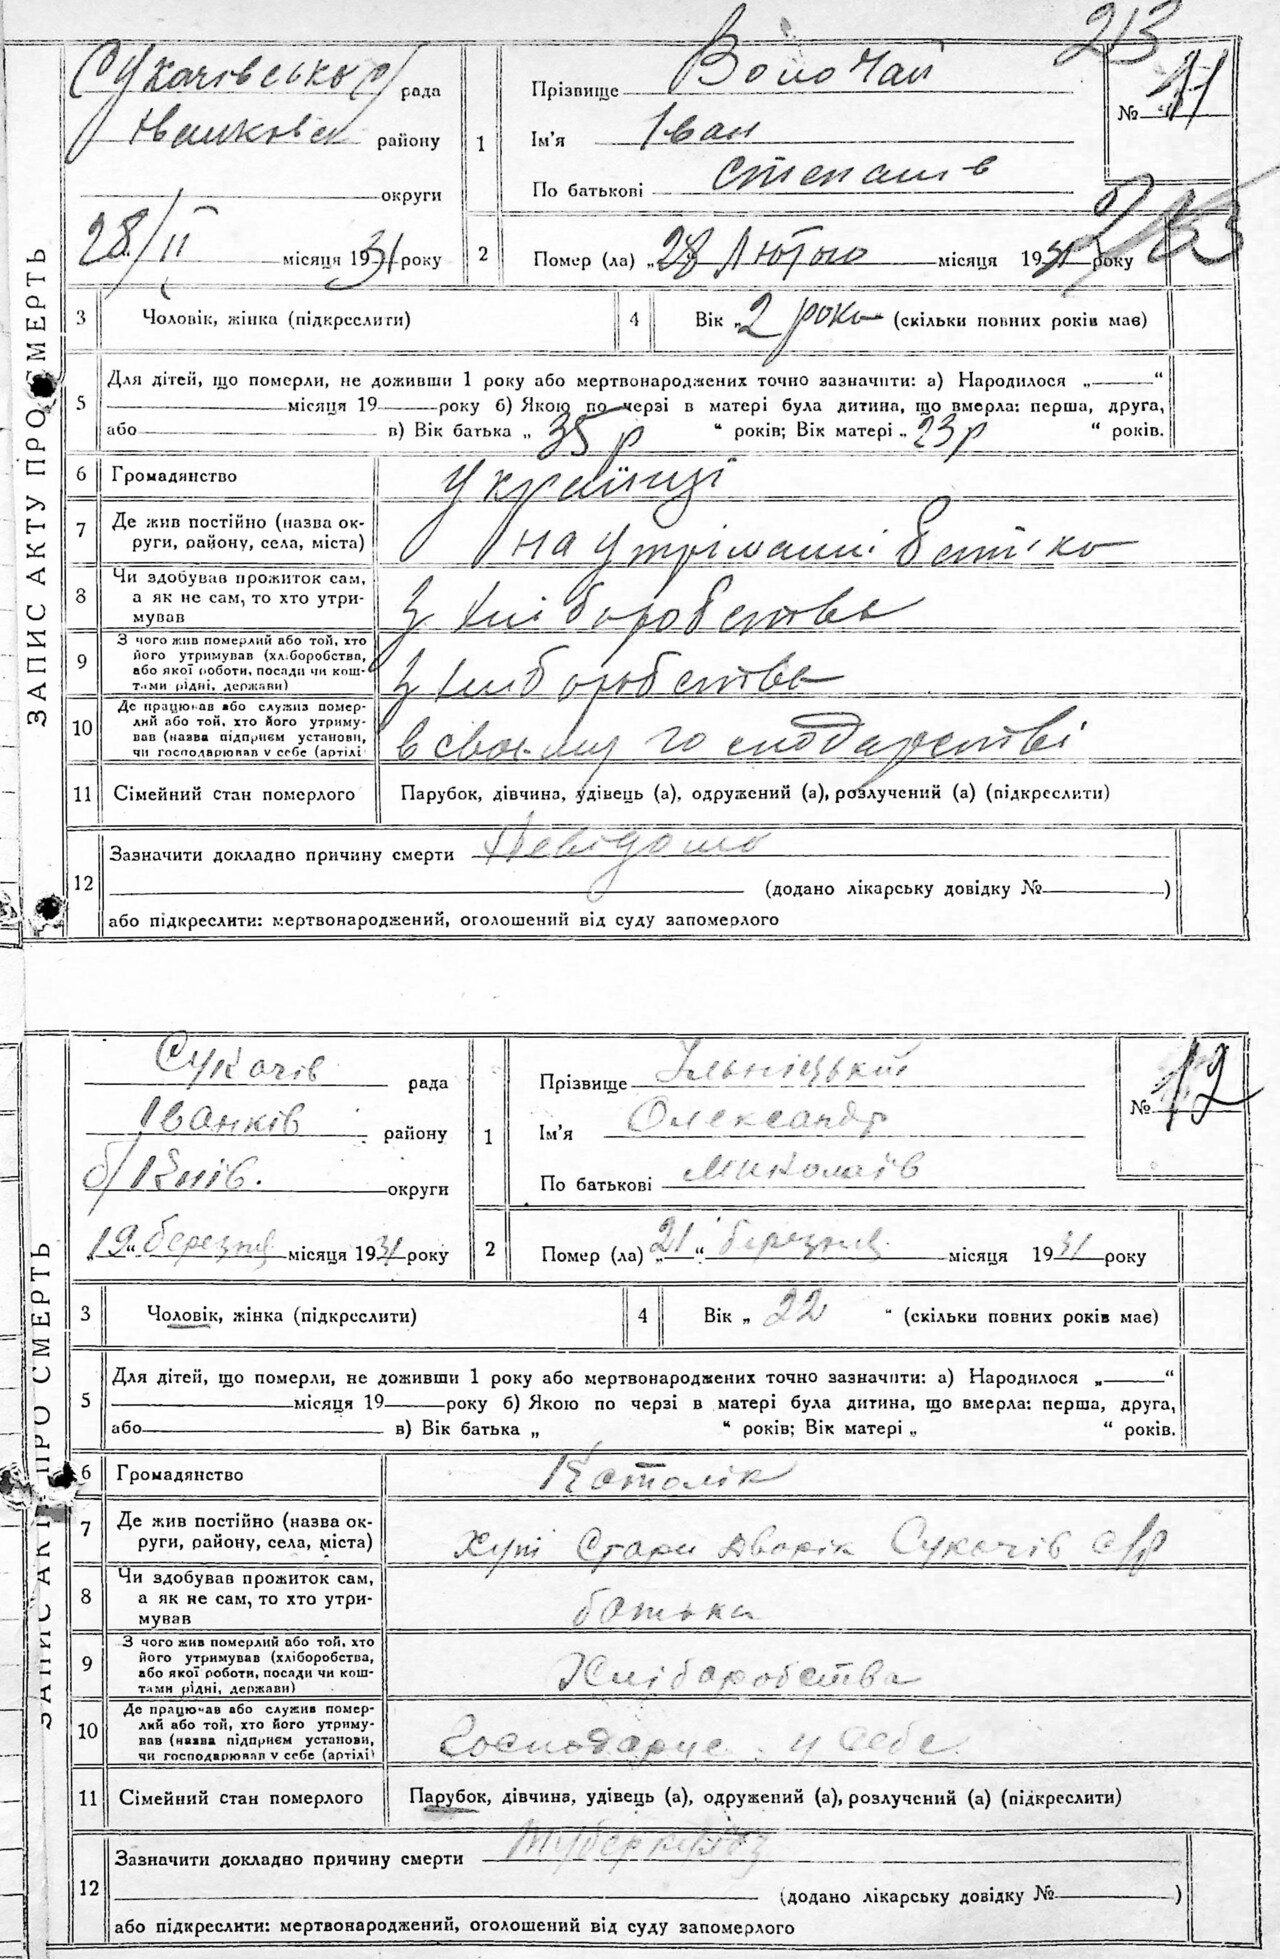 213
Сукачівської рада
Іванков району
округи
28/II місяця 1931 року
1
Прізвище Волочай
Ім'я Іван
По батькові Степанів
№ 11
213
2
Помер (ла) „28 Лютого місяця 1931 року
3
Чоловік, жінка (підкреслити)
4
Вік „2 роки (скільки повних років має)
5
Для дітей, що померли, не доживши 1 року або мертвонароджених точно зазначити: а) Народилося „ “
місяця 19 року б) Якою по черзі в матері була дитина, що вмерла: перша, друга,
або в) Вік батька „ 35 р “ років; Вік матері „ 23 р “ років.
6
Громадянство
українці
7
Де жив постійно (назва ок-
руги, району, села, міста)
на утріманні батька
8
Чи здобував прожиток сам,
а як не сам, то хто утри-
мував
З хліборобства
9
З чого жив померлий або той, хто
його утримував (хліборобства,
або якої роботи, посади чи кош-
тами рідні, держави)
З хліборобства
10
Де працював або служив помер-
лий або той, хто його утриму-
вав (назва підприєм установи,
чи господарював у себе (артілі
в своєму господарстві
11
Сімейний стан померлого
Парубок, дівчина, удівець (а), одружений (а), розлучений (а) (підкреслити)
12
Зазначити докладно причину смерти Невідомо
(додано лікарську довідку № )
або підкреслити: мертвонароджений, оголошений від суду запомерлого
ЗАПИС АКТУ ПРО СМЕРТЬ
Сукачів рада
Іванків району
б/Київ. округи
„19“ березня місяця 1931 року
1
Прізвище Ільніцький
Ім'я Олександр
По батькові Миколаїв
№ 12
2
Помер (ла) „21“ березня місяця 1931 року
3
Чоловік, жінка (підкреслити)
4
Вік „ 22 “ (скільки повних років має)
5
Для дітей, що померли, не доживши 1 року або мертвонароджених точно зазначити: а) Народилося „ “
місяця 19 року б) Якою по черзі в матері була дитина, що вмерла: перша, друга,
або в) Вік батька „ “ років; Вік матері „ “ років.
6
Громадянство
Католік
7
Де жив постійно (назва ок-
руги, району, села, міста)
хут Стари Дворік Сукачів с/р
8
Чи здобував прожиток сам,
а як не сам, то хто утри-
мував
батька
9
З чого жив померлий або той, хто
його утримував (хліборобства,
або якої роботи, посади чи кош-
тами рідні, держави)
Хліборобства
10
Де працював або служив помер-
лий або той, хто його утриму-
вав (назва підприєм установи,
чи господарював у себе (артілі)
Господарує у себе
11
Сімейний стан померлого
Парубок, дівчина, удівець (а), одружений (а), розлучений (а) (підкреслити)
12
Зазначити докладно причину смерти туберкульоз
(додано лікарську довідку № )
або підкреслити: мертвонароджений, оголошений від суду запомерлого
ЗАПИС АКТ ПРО СМЕРТЬ